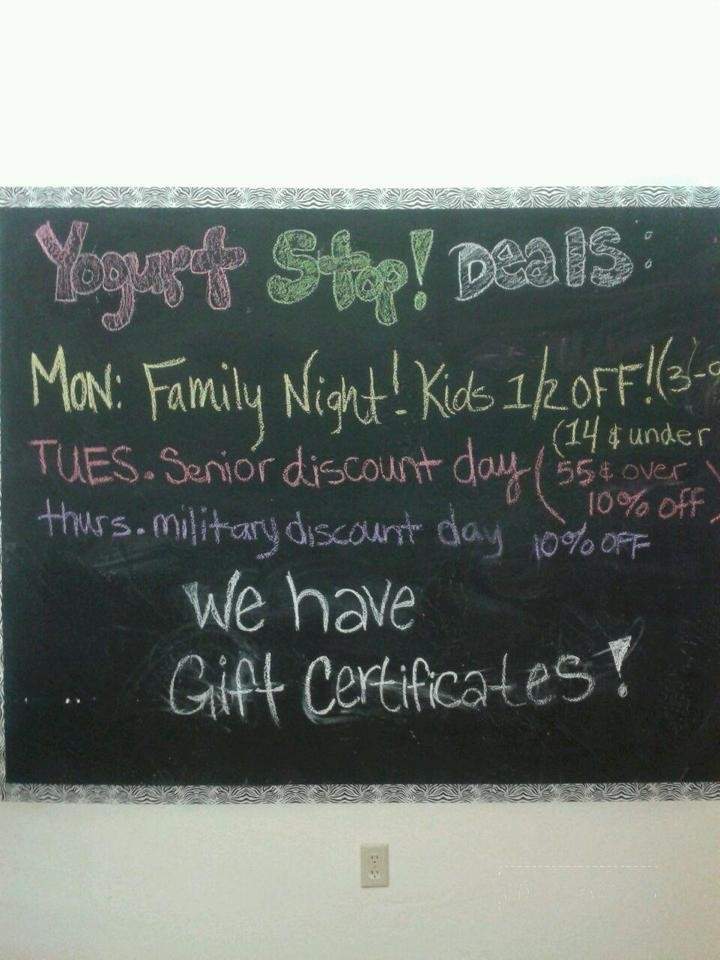 Yogurt Stop! Deals:
MON: Family Night! Kids 1/2 OFF! (3-9
(14 & under
TUES. Senior discount day (55 & over
10% off)
thurs. military discount day 10% OFF
We have
Gift Certificates!